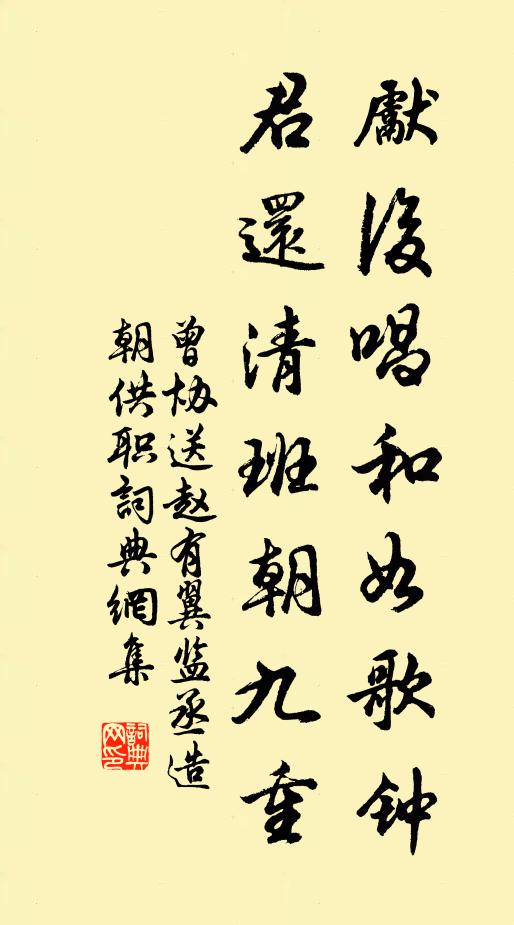 獻後唱和如歌钟
君還清班朝九重
曾协送赵有翼监丞造
朝供职詞典網集
詞典
网印